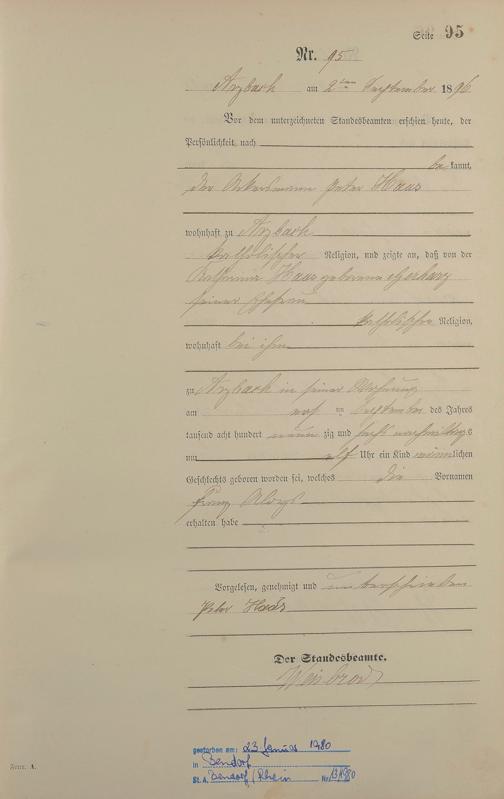 Seite 95
Nr. 95
Arzbach am 2ten September 1896
Vor dem unterzeichneten Standesbeamten erschien heute, der
Persönlichkeit nach
bekannt,
der Ackersmann Peter Haas
wohnhaft zu Arzbach
katholischer Religion, und zeigte an, daß von der
Katharina Haas geborene Gerharz
seiner Ehefrau
katholischer Religion,
wohnhaft bei ihm
zu Arzbach in seiner Wohnung
am ten September des Jahres
tausend acht hundert neunzig und sechs nachmittags
um elf Uhr ein Kind männlichen
Geschlechts geboren worden sei, welches die Vornamen
Franz Aloys
erhalten habe
Vorgelesen, genehmigt und unterschrieben
Peter Haas
Der Standesbeamte.
Weisbrod
gestorben am: 23 Januar 1980
in Bendorf
St. A. Bendorf/Rhein Nr. 13/1980
Form. A.